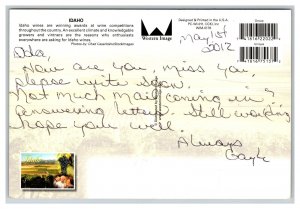 IDAHO
Idaho wines are winning awards at wine competitions
throughout the country. An excellent climate and knowledgeable
growers and vintners are the reasons why enthusiasts
everywhere are asking for Idaho wines.
Western Image
Mar 1st
2012
How are you, miss you
please write soon.
Not much mail coming in
answering letters. Still working
hope your well.
Always
Gayle